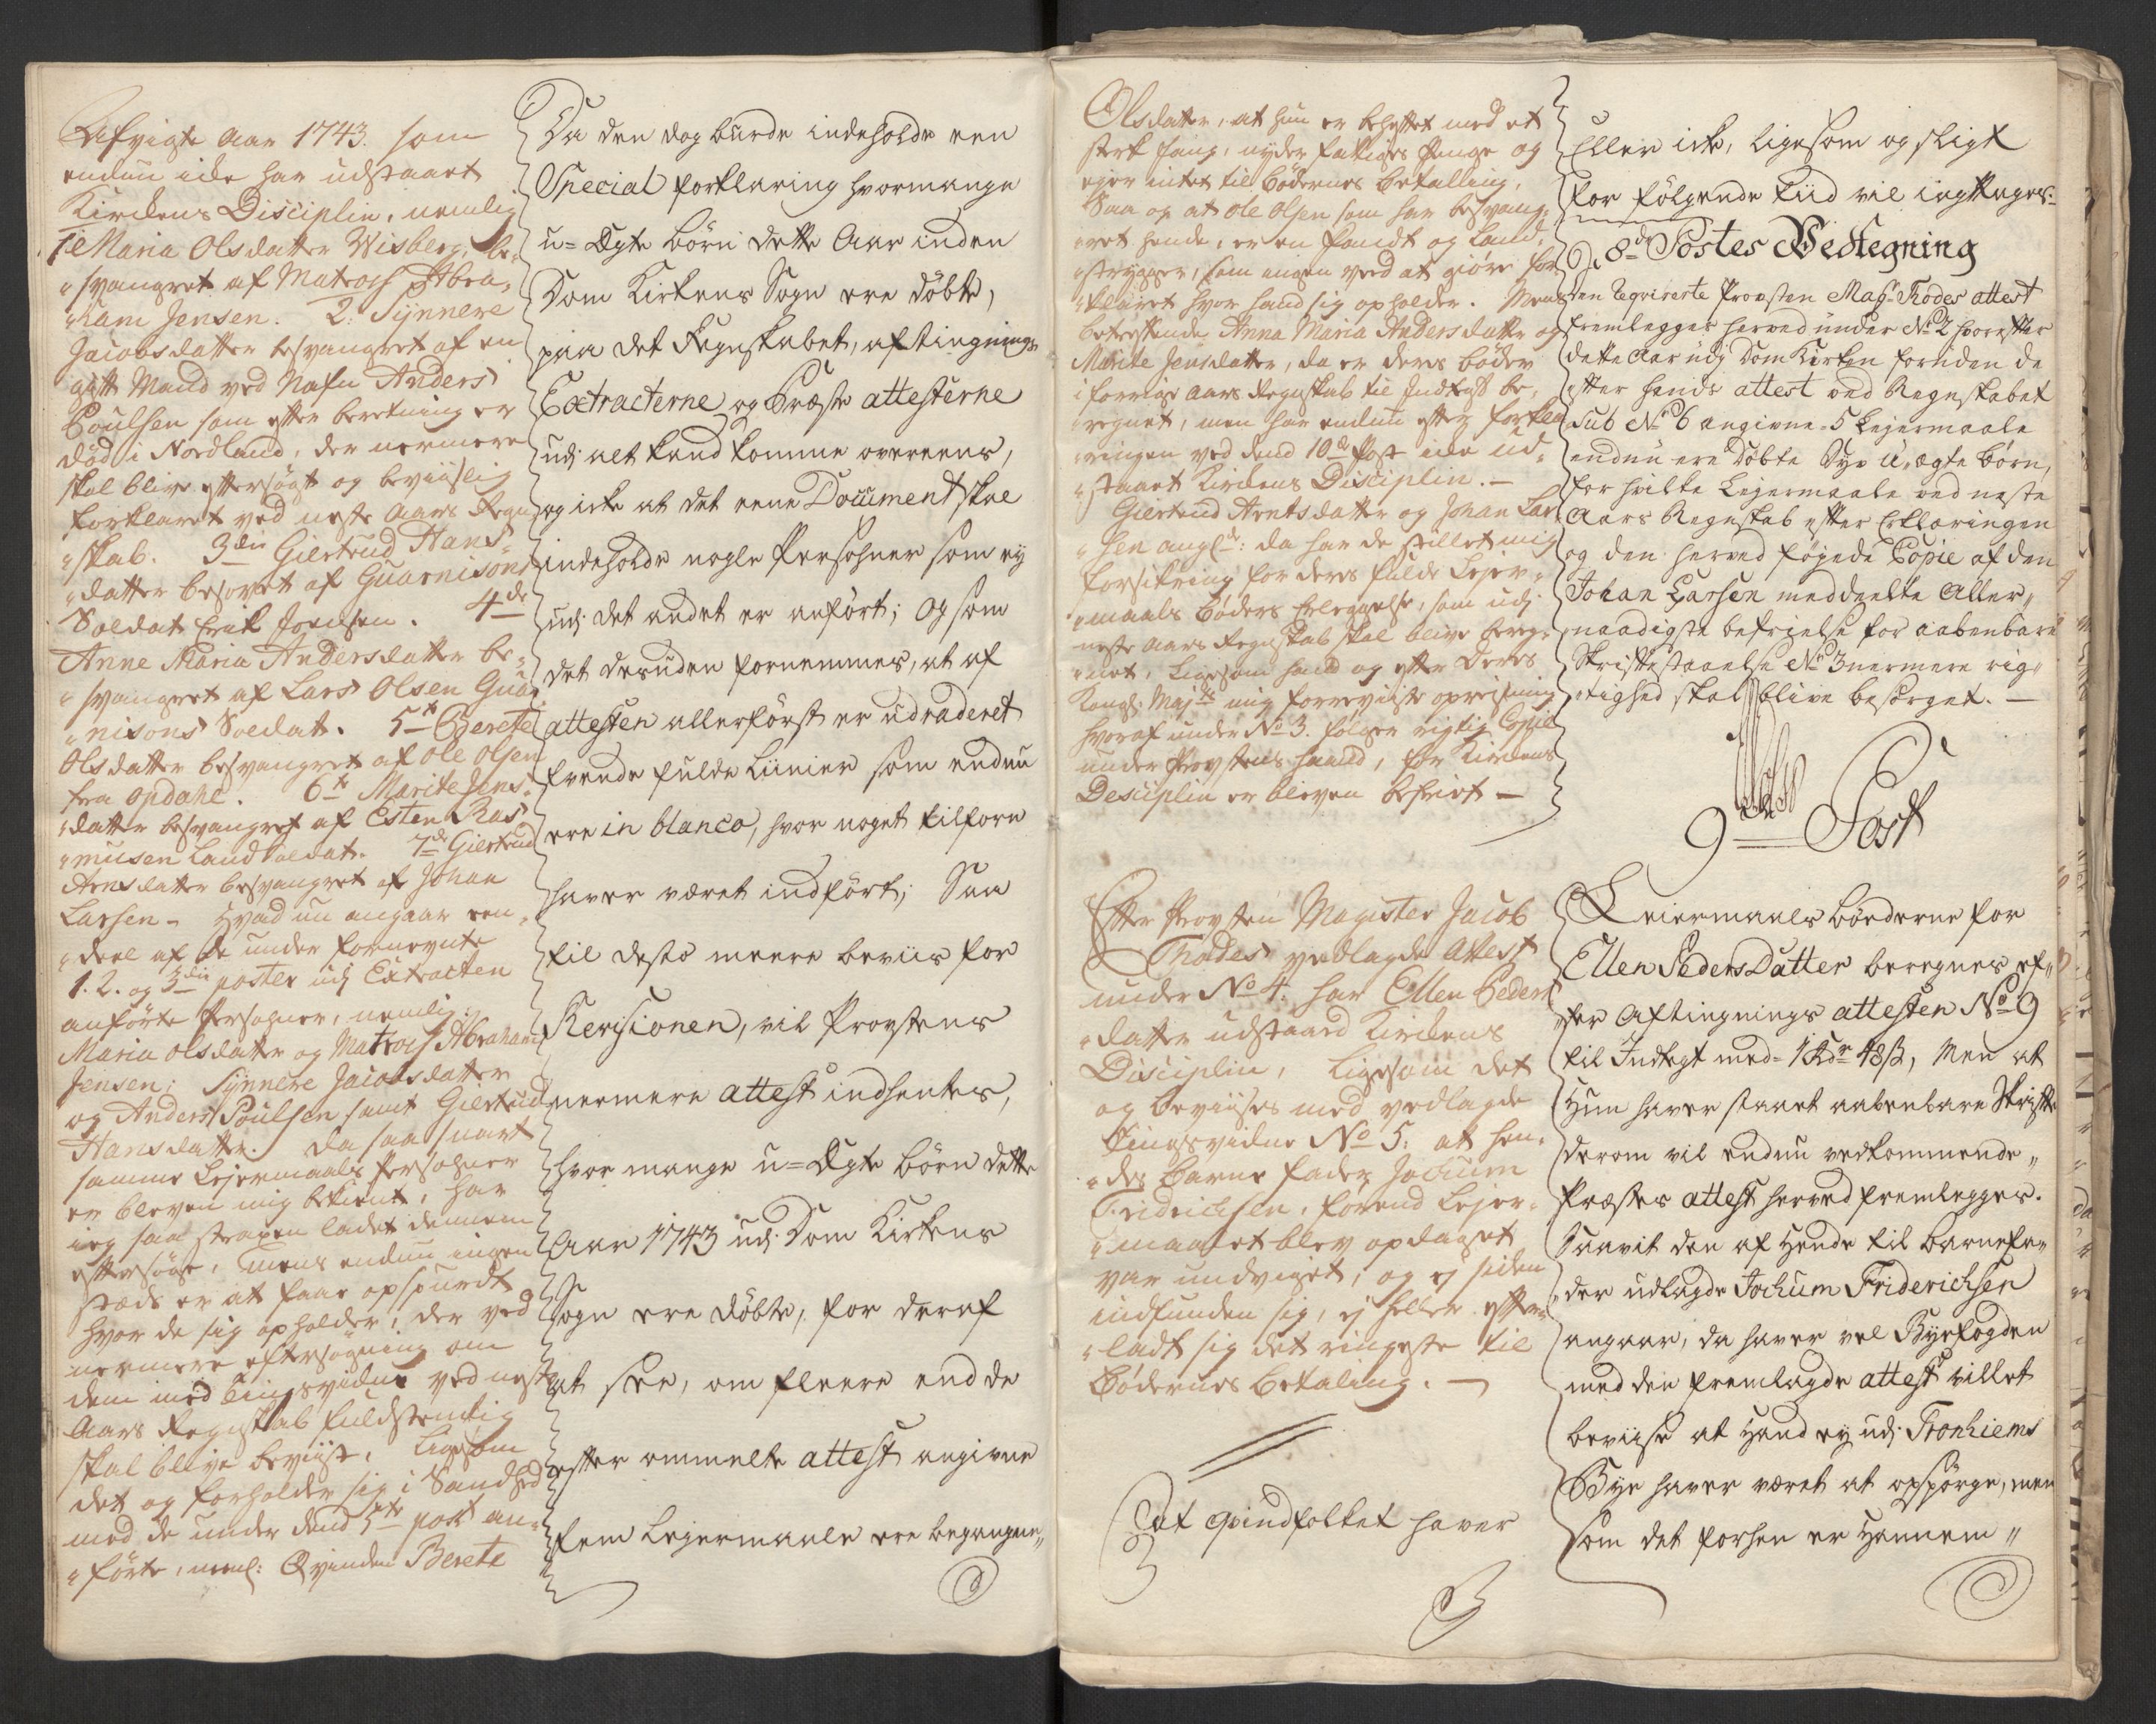 Afvigte Aar 1743. som
endnu icke har udstaaet
Kirckens Disciplin, nemlig
1e Maria Olsdatter Wisberg, be-
svangret af Matros Abra-
ham Jensen. 2: Synnere
Jacobsdatter besvangret af en
gift Mand ved Nafn Anders
Poulsen som efter beretning er
død i Nordland, der nermere
skal blive eftersøgt og beviislig
forklaret ved neste Aars Regn-
skab. 3die Giertrud Hans-
datter besovet af Guarnisons
Soldat Erik Joensen. 4de
Anne Maria Andersdatter be-
svangret af Lars Olsen Guar-
nisons Soldat. 5te Berete
Olsdatter besvangret af Ole Olsen
fra Opdahl. 6te Marite Jens-
datter besvangret af Esten Ras-
musen Land Soldat. 7de Giertrud
Arntsdatter besvangret af Johan
Larsen. Hvad nu angaar een
deel af de under fornevnte
1. 2. og 3die poster udj Extracten
anførte Persohner, nemlig:
Maria Olsdatter og Matros Abraham
Jensen; Synnere Jacobsdatter
og Anders Poulsen samt Giertrud
Hansdatter. Da saa snart
samme Lejermaals Persohner
er bleven mig bekient, har
ieg saa straxen ladet dennem
eftersøge, mens endnu ingen
stæds er at faae opspurdt
hvor de sig opholder, der ved
nermere eftersøgning om
dem med tingsvidne ved neste
Aars Regnskab fuldstendig
skal blive beviist. Ligesom
det og forholder sig i Sandhed
med de under dend 5te post an-
førte, neml: Qvinden Berete
Da den dog burde indeholde een
Special forklaring hvormange
u-Ægte børn dette Aar inden
Dom Kirkens Sogn ere døbte,
paa det Regnskabet, aftingnings
Extracterne og Præste attesterne
udj alt kand komme overeens,
og icke at det eene Document skal
indeholde nogle Persohner som ey
udj det andet er anført; Og som
det desuden fornemmes, at af
attesten allerførst er udraderet
trende fulde Liinier som endnu
ere in blanco, hvor noget tilforn
haver været indført; Saa
til desto meere beviis for
Revisionen, vil Provstens
nermere attest indhentes,
hvor mange u-Ægte børn dette
Aar 1743 udj Dom Kirkens
Sogn ere døbte, for deraf
at see, om fleere end de
efter ommelte attest angivne
fem Lejermaale ere begangne,,
Olsdatter, at hun er beheftet med et
sterk fang, nyder fattiges Penge og
ejer intet til Bødernes betalling,
Saa og at Ole Olsen som har besvang-
ret hende, er en Fandt og Land-
strygger, som ingen veed at giøre for-
klaret hvor hand sig opholder. Mens
betreffende Anna Maria Andersdatter og
Marite Jensdatter, da er deres bøder
i forrige Aars Regnskab til Indtægt be-
regnet, men har endnu efter forkla-
ringen ved dend 10de Post icke ud-
staaet Kirckens Disciplin.—
Giertrud Arntsdatter og Johan Lar-
sen angl: da har de stillet mig
forsikring for deres fulde Lejer-
maals Bøders Erleggelse, som udj
neste Aars Regnskab skal blive bereg-
net, Ligesom hand og efter Deres
Kongl. Majts mig foreviiste opreisning
hvoraf under No 3. følger rigtig Copie
under Provstens haand, for Kirckens
Desciplin er bleven befriet —
Efter Provsten Magister Jacob
Rhodes vedlagde Attest
under No 4. har Ellen Peders
datter udstaaed Kirckens
Disciplin, Ligesom det
og beviises med vedlagde
Tingsvidne No 5: at hen-
des Barne fader Jochum
Fridrichsen, førend Lejer-
maalet blev opdaget
var undviget, og ej siden
indfunden sig, ej heller efter-
ladt sig det ringeste til
Bødernes betaling. —
At qvindfolket haver
Eller icke, ligesom og sligt
for følgende tiid vil iagttages:
De 8de Postes Vedtegning
den Reqvirerte Provsten Magr Rodes attest
fremlegges herved under No 2 hvorefter
dette Aar udj Dom Kirken foruden de
efter hands attest ved Regnskabet
Sub No 6 angivne 5 Lejermaale
endnu ere Døbte Syv U,ægte børn,
for hvilke Lejermaale ved neste
Aars Regnskab efter Erklæringen
og den herved føyede Copie af den
Johan Larsen meddeelte Aller-
naadigste befrielse for aabenbare
Skriftestaaelse No 3 nermere rig-
tighed skal blive besørget. —
9de Post
Leiermaals bøderne for
Ellen Peders Datter beregnes ef-
ter Aftingnings attesten No 9
til Indtegt med 1 Rdr 48 s, Men at
Hun haver staaet aabenbare Skrifte
derom vil endnu vedkommende
Præstes attest herved fremlegges.
Saavit den af Hende til barnefa-
der udlagde Jochum Friderichsen
angaar, da haver vel Byefogden
med den fremlagde attest villet
beviise at Hand ey udj Tronhiems
Bye haver været at opspørge, men
som det forhen er Hannem,,